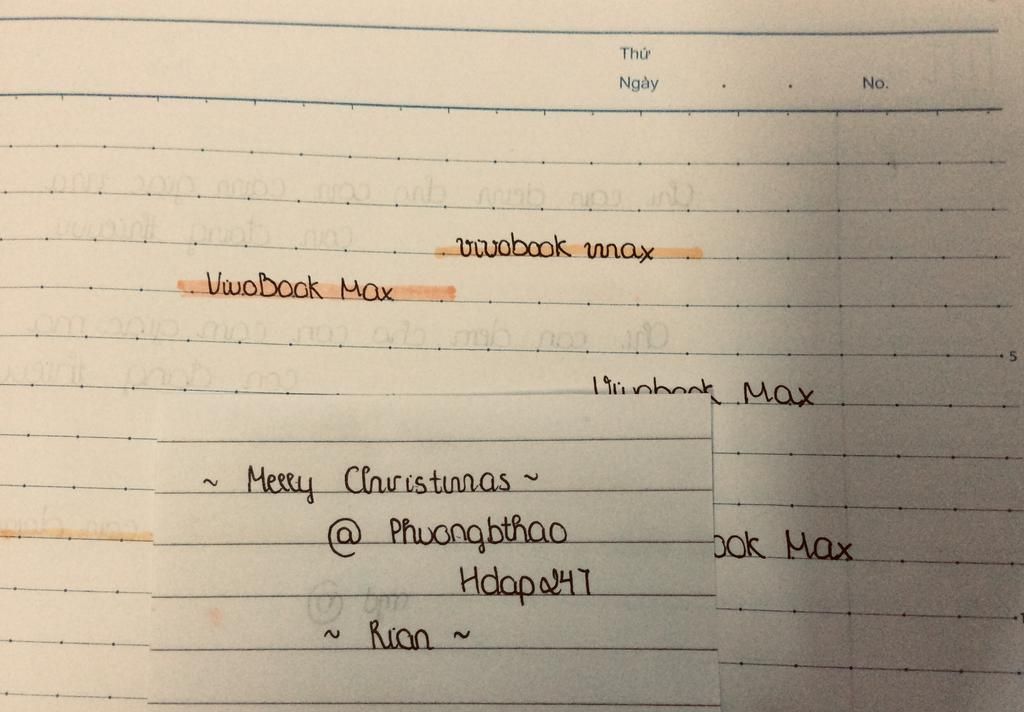 Thứ
Ngày . . No.
vivobook max
VivoBook Max
5
Vivobook Max
~ Merry Christmas ~
@ Phuongbthao
ook Max
Hdap247
~ Rian ~